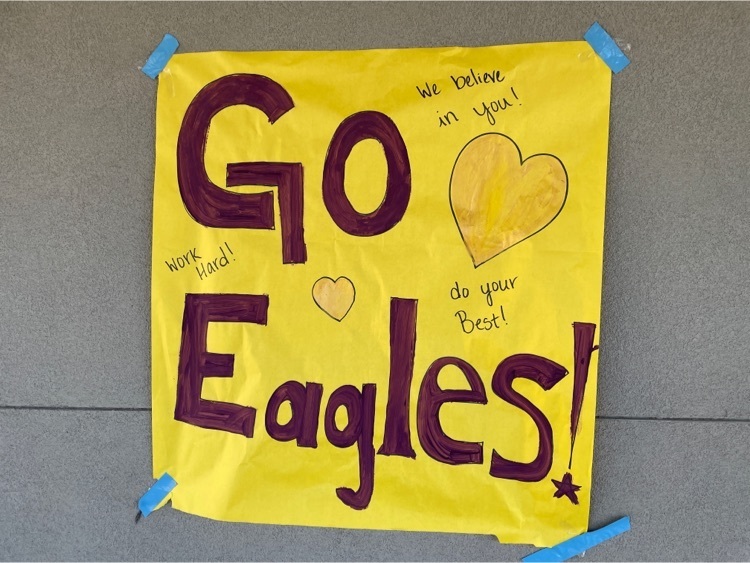 Go
We believe
in you!
work
Hard!
do your
Best!
Eagles!